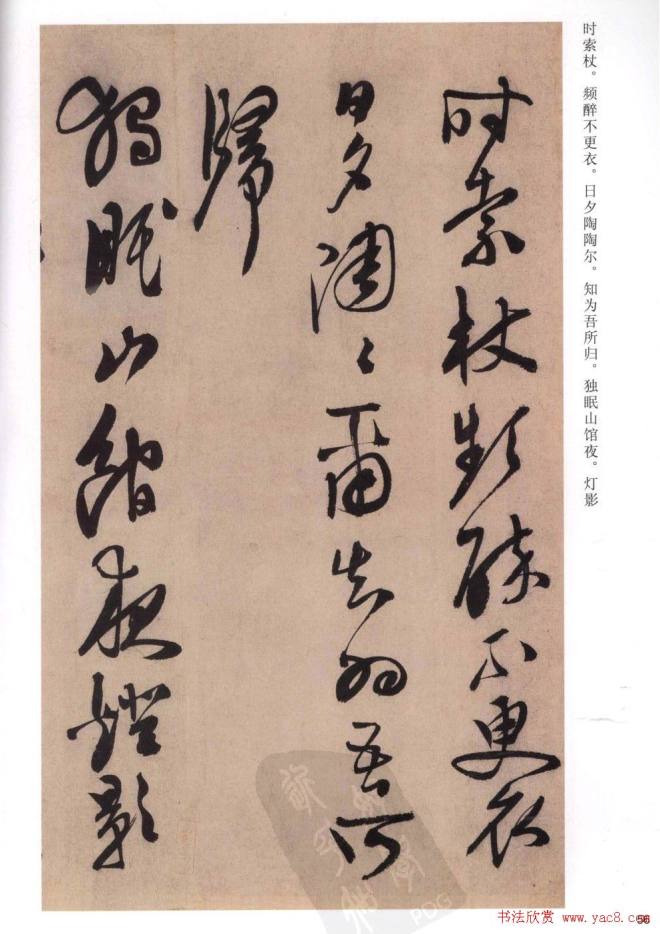 时索杖。频醉不更衣。日夕陶陶尔。知为吾所归。独眠山馆夜。灯影
時索杖頻醉不更衣
日夕陶〻爾知為吾所
歸
獨眠山館夜鐙影
PDG
书法欣赏 www.yac8.com
56